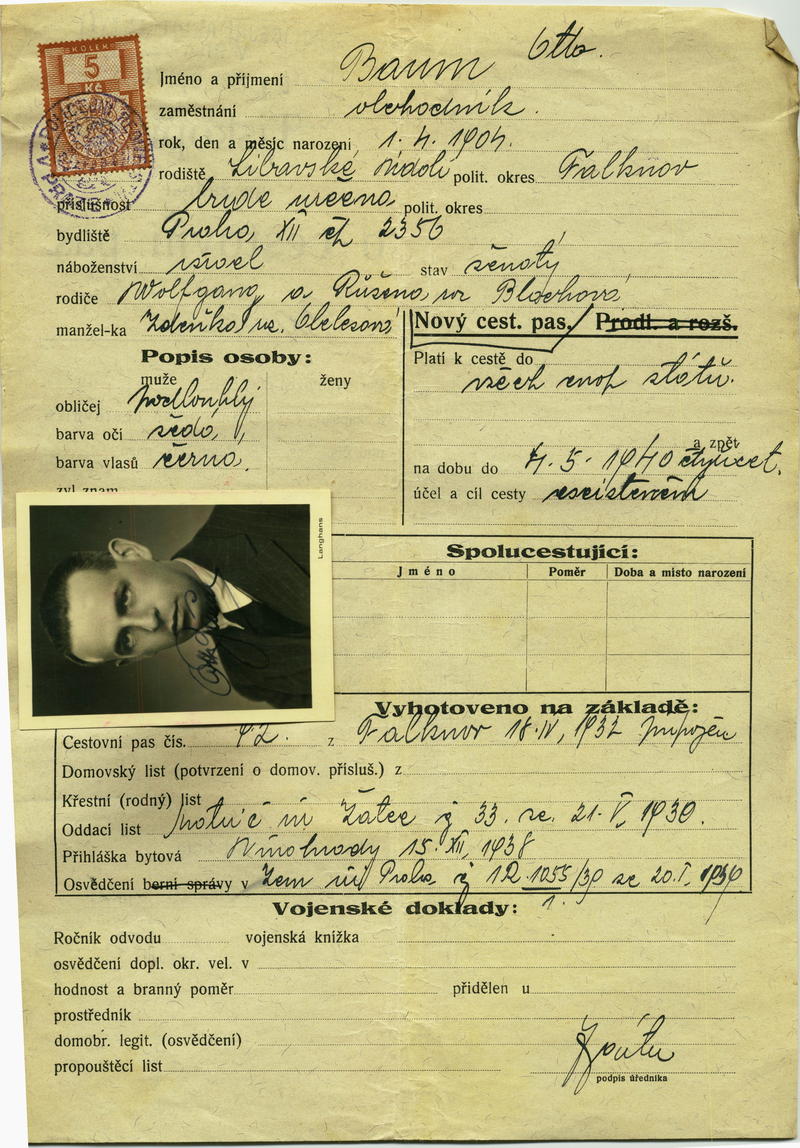 KOLEK
5
Kč
Jméno a příjmení Baum Otto.
zaměstnání obchodník.
rok, den a měsíc narození 1. 4. 1904.
rodiště Libavské údolí polit. okres Falknov
příslušnost bude určena polit. okres
bydliště Praha XII čp 2356
náboženství israel stav ženatý
rodiče Wolfgang a Růžena roz Blochová
manžel-ka Zdeňka
Nový cest. pas. Prodl. a rozš.
Popis osoby:
muže ženy
Platí k cestě do
všech evrop států.
obličej podlouhlý
barva očí šedá
barva vlasů černá
zvl. znam.
a zpět
na dobu do 4. 5. 1940 čtyřicet.
účel a cíl cesty
Langhans
Spolucestující:
Jméno Poměr Doba a místo narození
Vyhotoveno na základě:
Cestovní pas čís. 42. z Falknov 18. IV, připojen
Domovský list (potvrzení o domov. přísluš.) z
Křestní (rodný) list
Oddací list Žatec č 33. ze 21. V, 1930.
Přihláška bytová Vinohrady 15. XII, 1938
Osvědčení berní správy v Zem Praha č 12 1055/39 ze 20. I. 1939.
Vojenské doklady:
Ročník odvodu vojenská knížka
osvědčení dopl. okr. vel. v
hodnost a branný poměr přidělen u
prostředník
domobr. legit. (osvědčení)
propouštěcí list
podpis úředníka